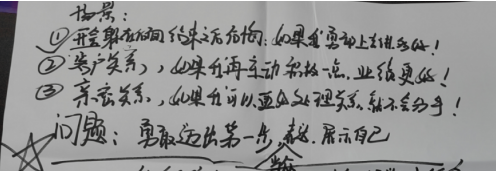 场景：
① 开会聚在时间结束之后后悔：如果我勇敢上去讲多好！
② 客户关系，如果我再主动积极一点，业绩更好！
③ 亲密关系，如果我可以更好处理关系，就不会分手！
问题：勇敢迈出第一步，表达，展示自己